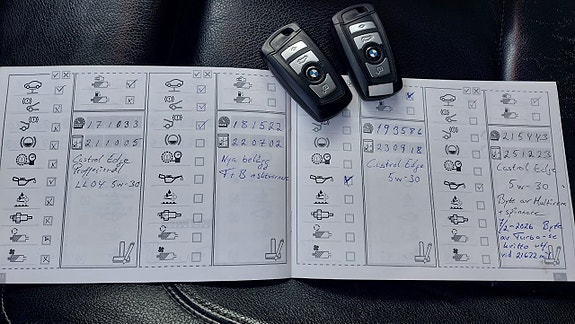 171033
211025
Castrol Edge
Professional
LL04 5w-30
181522
220702
Nya belägg
F+B
193586
230918
Castrol Edge
5w-30
215443
251223
Castrol Edge
5w-30
Byte av Multirem
+ spännare
7/2-2026 Byte
av Turbo-se
kvitto
vid